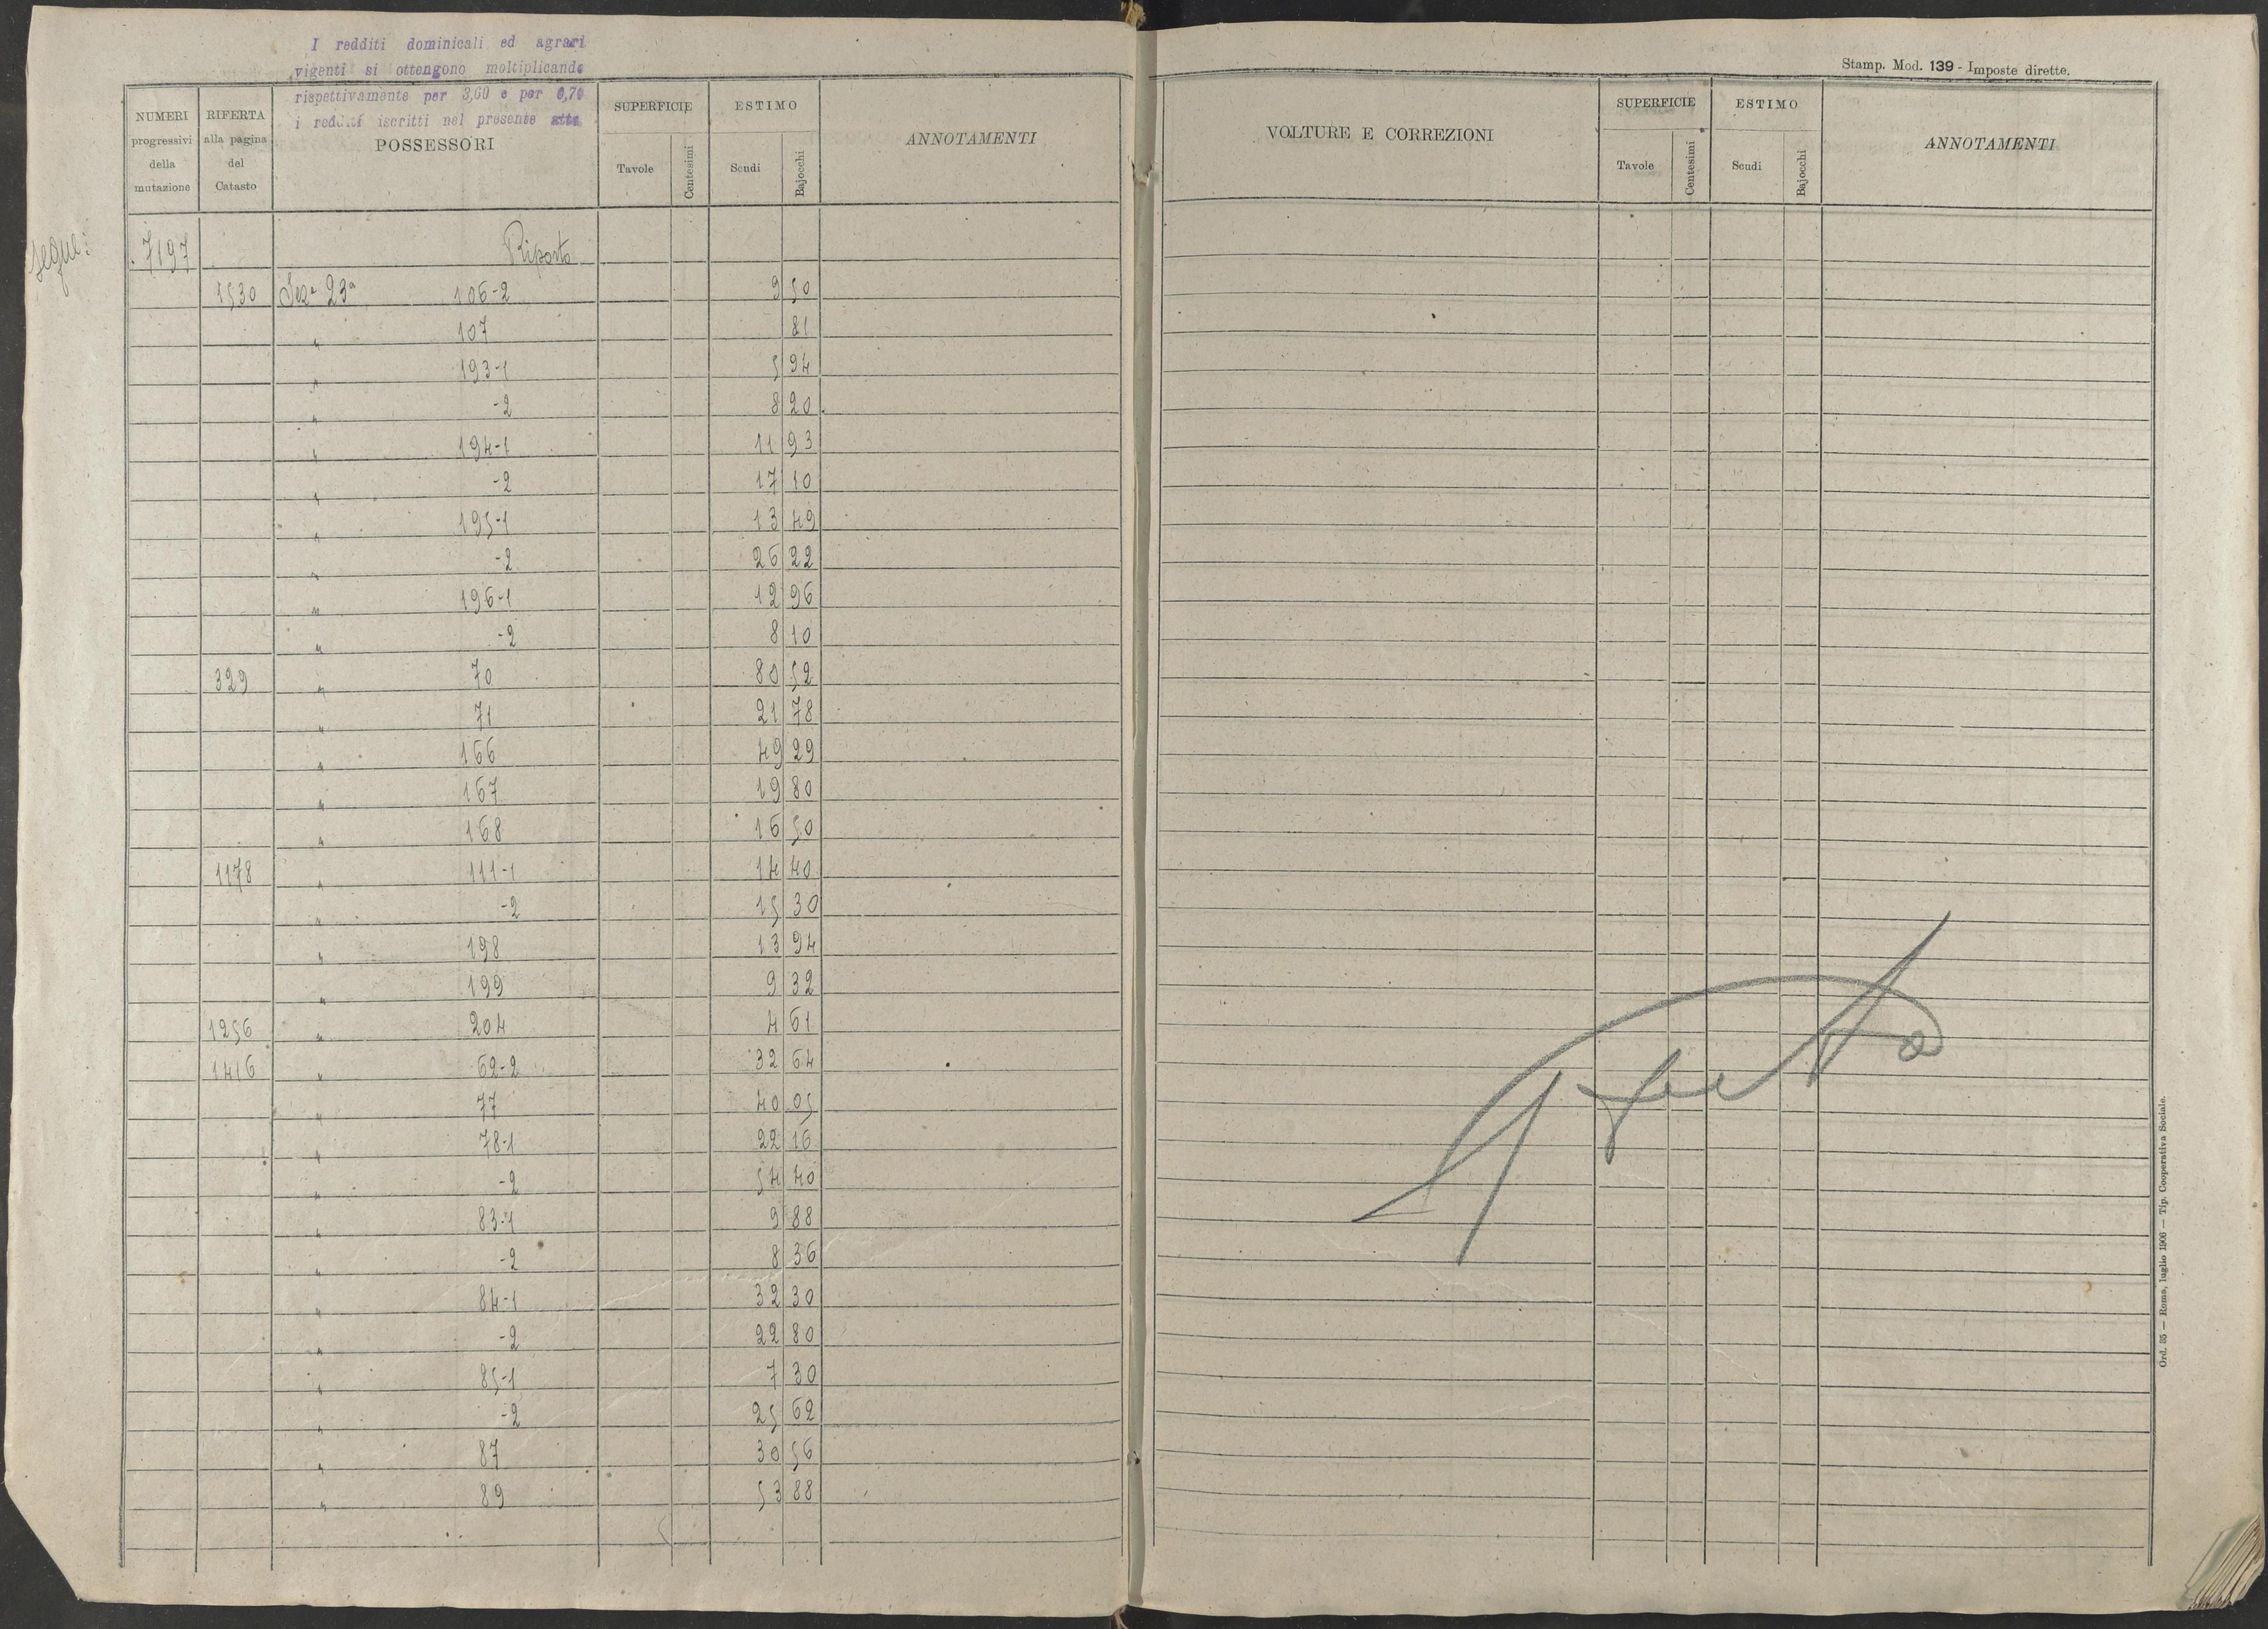 I redditi dominicali ed agrari
vigenti si ottengono moltiplicando
rispettivamente per 3,60 e per 0,70
i redditi iscritti nel presente atto
NUMERI progressivi della mutazione
RIFERTA alla pagina del Catasto
POSSESSORI
SUPERFICIE
Tavole
Centesimi
ESTIMO
Scudi
Bajocchi
ANNOTAMENTI
segue: 7197 Riporto
1530 Sez.ª 23ª 106-2 9 50
" 107 81
" 193-1 5 94
" -2 8 20
" 194-1 11 93
" -2 17 10
" 195-1 13 49
" -2 26 22
" 196-1 12 96
" -2 8 10
329 " 70 80 52
" 71 21 78
" 166 49 29
" 167 19 80
" 168 16 50
1178 " 111-1 14 40
" -2 15 30
" 198 13 94
" 199 9 32
1256 " 204 4 61
1416 " 62-2 32 64
" 77 40 05
" 78-1 22 16
" -2 54 40
" 83-1 9 88
" -2 8 36
" 84-1 32 30
" -2 22 80
" 85-1 7 30
" -2 25 62
" 87 30 56
" 89 53 88
Stamp. Mod. 139 - Imposte dirette.
VOLTURE E CORREZIONI
SUPERFICIE
Tavole
Centesimi
ESTIMO
Scudi
Bajocchi
ANNOTAMENTI
Ord. 35 — Roma, luglio 1906 — Tip. Cooperativa Sociale.